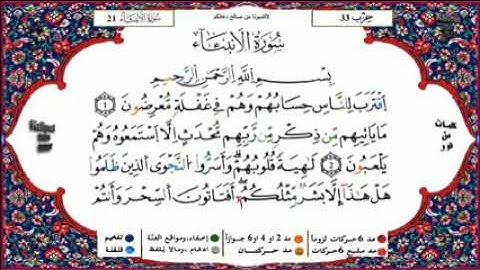 سورة الأنبياء 21
لاتنسونا من صالح دعائكم
حزب 33
سُورَةُ الأَنبِيَاءِ
بِسْمِ اللَّهِ الرَّحْمَنِ الرَّحِيمِ
اِقْتَرَبَ لِلنَّاسِ حِسَابُهُمْ وَهُمْ فِي غَفْلَةٍ مُّعْرِضُونَ 1
مَا يَأْتِيهِم مِّن ذِكْرٍ مِّن رَّبِّهِم مُّحْدَثٍ إِلَّا اَسْتَمَعُوهُ وَهُمْ
يَلْعَبُونَ 2 لَاهِيَةً قُلُوبُهُمْ وَأَسَرُّوا النَّجْوَى الَّذِينَ ظَلَمُوا
هَلْ هَذَا إِلَّا بَشَرٌ مِّثْلُكُمْ أَفَتَأْتُونَ السِّحْرَ وَأَنتُمْ
كلمات
من
نور
مد 6 حركات لزوما مد 2 أو 4 أو 6 جوازاً إخفاء، ومواقع الغنّة تفخيم
مد مشبع 6 حركات مد حركتان ادغام، ومالا يلفظ قلقلة